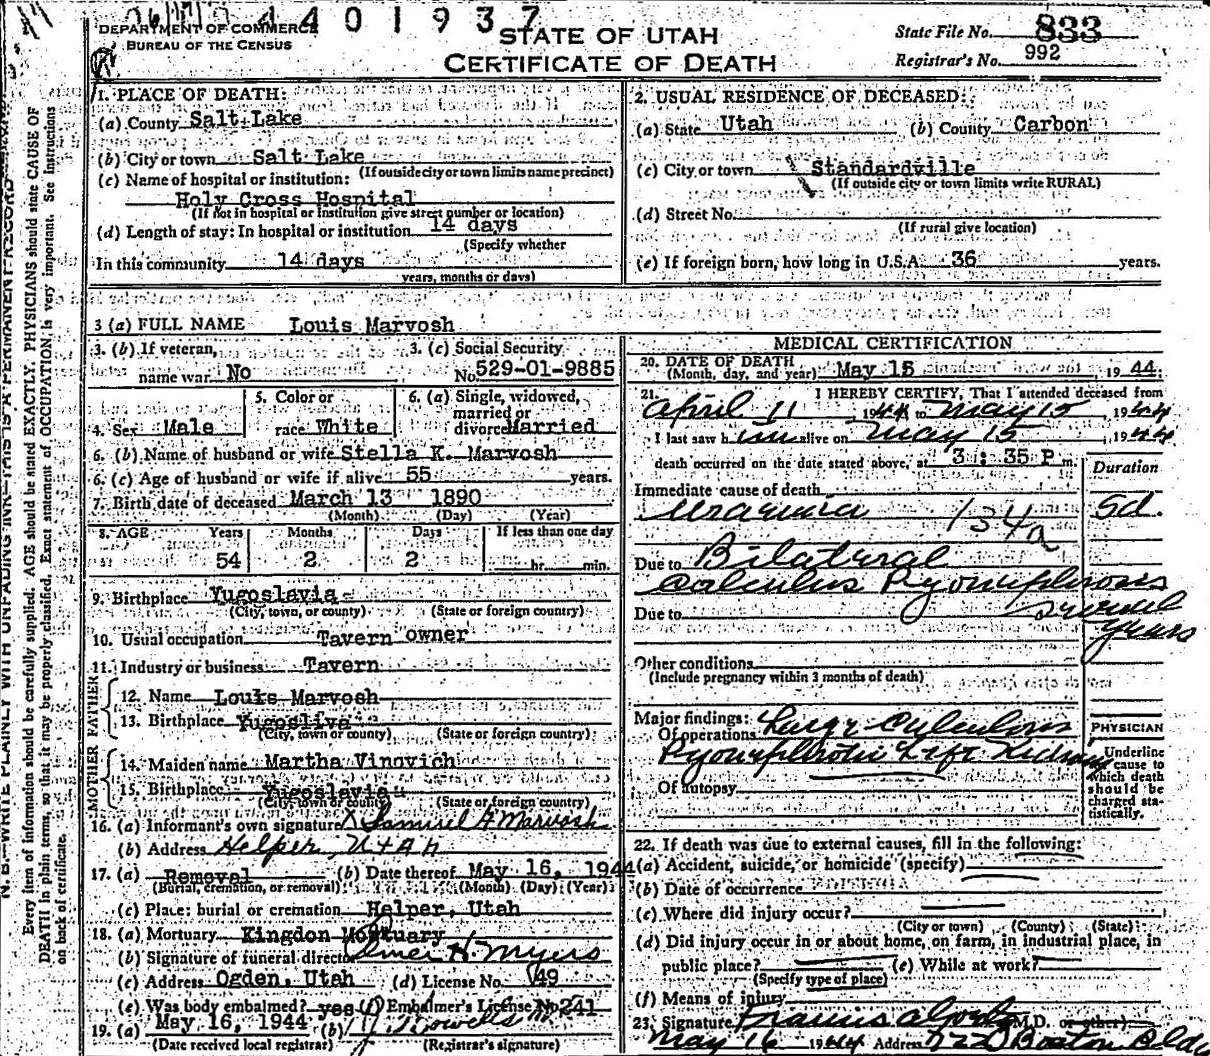 4 4 0 1 9 3 7
DEPARTMENT OF COMMERCE
BUREAU OF THE CENSUS
STATE OF UTAH
CERTIFICATE OF DEATH
State File No. 833
Registrar's No. 992
N. B.—WRITE PLAINLY WITH UNFADING INK—THIS IS A PERMANENT RECORD
Every item of information should be carefully supplied. AGE should be stated EXACTLY. PHYSICIANS should state CAUSE OF
DEATH in plain terms, so that it may be properly classified. Exact statement of OCCUPATION is very important. See instructions
on back of certificate.
1. PLACE OF DEATH:
(a) County Salt Lake
(b) City or town Salt Lake
(If outside city or town limits name precinct)
(c) Name of hospital or institution:
Holy Cross Hospital
(If not in hospital or institution give street number or location)
(d) Length of stay: In hospital or institution 14 days
(Specify whether
In this community 14 days
years, months or days)
2. USUAL RESIDENCE OF DECEASED:
(a) State Utah (b) County Carbon
(c) City or town Standardville
(If outside city or town limits write RURAL)
(d) Street No.
(If rural give location)
(e) If foreign born, how long in U.S.A. 36 years.
3 (a) FULL NAME Louis Marvosh
3. (b) If veteran, name war No
3. (c) Social Security No. 529-01-9885
4. Sex Male
5. Color or race White
6. (a) Single, widowed, married or divorced Married
6. (b) Name of husband or wife Stella K. Marvosh
6. (c) Age of husband or wife if alive 55 years.
7. Birth date of deceased March 13 1890
(Month) (Day) (Year)
8. AGE Years Months Days If less than one day
54 2 2 hr. min.
9. Birthplace Yugoslavia
(City, town, or county) (State or foreign country)
10. Usual occupation Tavern owner
11. Industry or business Tavern
FATHER
12. Name Louis Marvosh
13. Birthplace Yugosliva
(City, town or county) (State or foreign country)
MOTHER
14. Maiden name Martha Vinovich
15. Birthplace Yugoslavia
(City, town or county) (State or foreign country)
16. (a) Informant's own signature X Samuel A Marvosh
(b) Address Helper, Utah
17. (a) Removal (b) Date thereof May 16, 1944
(Burial, cremation, or removal) (Month) (Day) (Year)
(c) Place: burial or cremation Helper, Utah
18. (a) Mortuary Kingdon Mortuary
(b) Signature of funeral director Elmer H. Myers
(c) Address Ogden, Utah (d) License No. 49
(e) Was body embalmed? yes (f) Embalmer's License No. 241
19. (a) May 16, 1944 (b)
(Date received local registrar) (Registrar's signature)
MEDICAL CERTIFICATION
20. DATE OF DEATH May 15 1944
(Month, day, and year)
21. I HEREBY CERTIFY, That I attended deceased from
April 11, 1944 to May 15 1944
I last saw him alive on May 15, 1944
death occurred on the date stated above, at 3 : 35 P m.
Duration
Immediate cause of death
Uraemia 134a 5d.
Due to Bilateral
Calculus Pyonephrosis
several
years
Due to
Other conditions
(Include pregnancy within 3 months of death)
Major findings:
Of operations Large Calculous
Pyonephrotic Left Kidney
Of autopsy
PHYSICIAN
Underline cause to which death should be charged statistically.
22. If death was due to external causes, fill in the following:
(a) Accident, suicide, or homicide (specify)
(b) Date of occurrence
(c) Where did injury occur?
(City or town) (County) (State)
(d) Did injury occur in or about home, on farm, in industrial place, in
public place? (e) While at work?
(Specify type of place)
(f) Means of injury
23. Signature Francis M.D. or other)
May 16 1944 Address 722 Boston Bldg